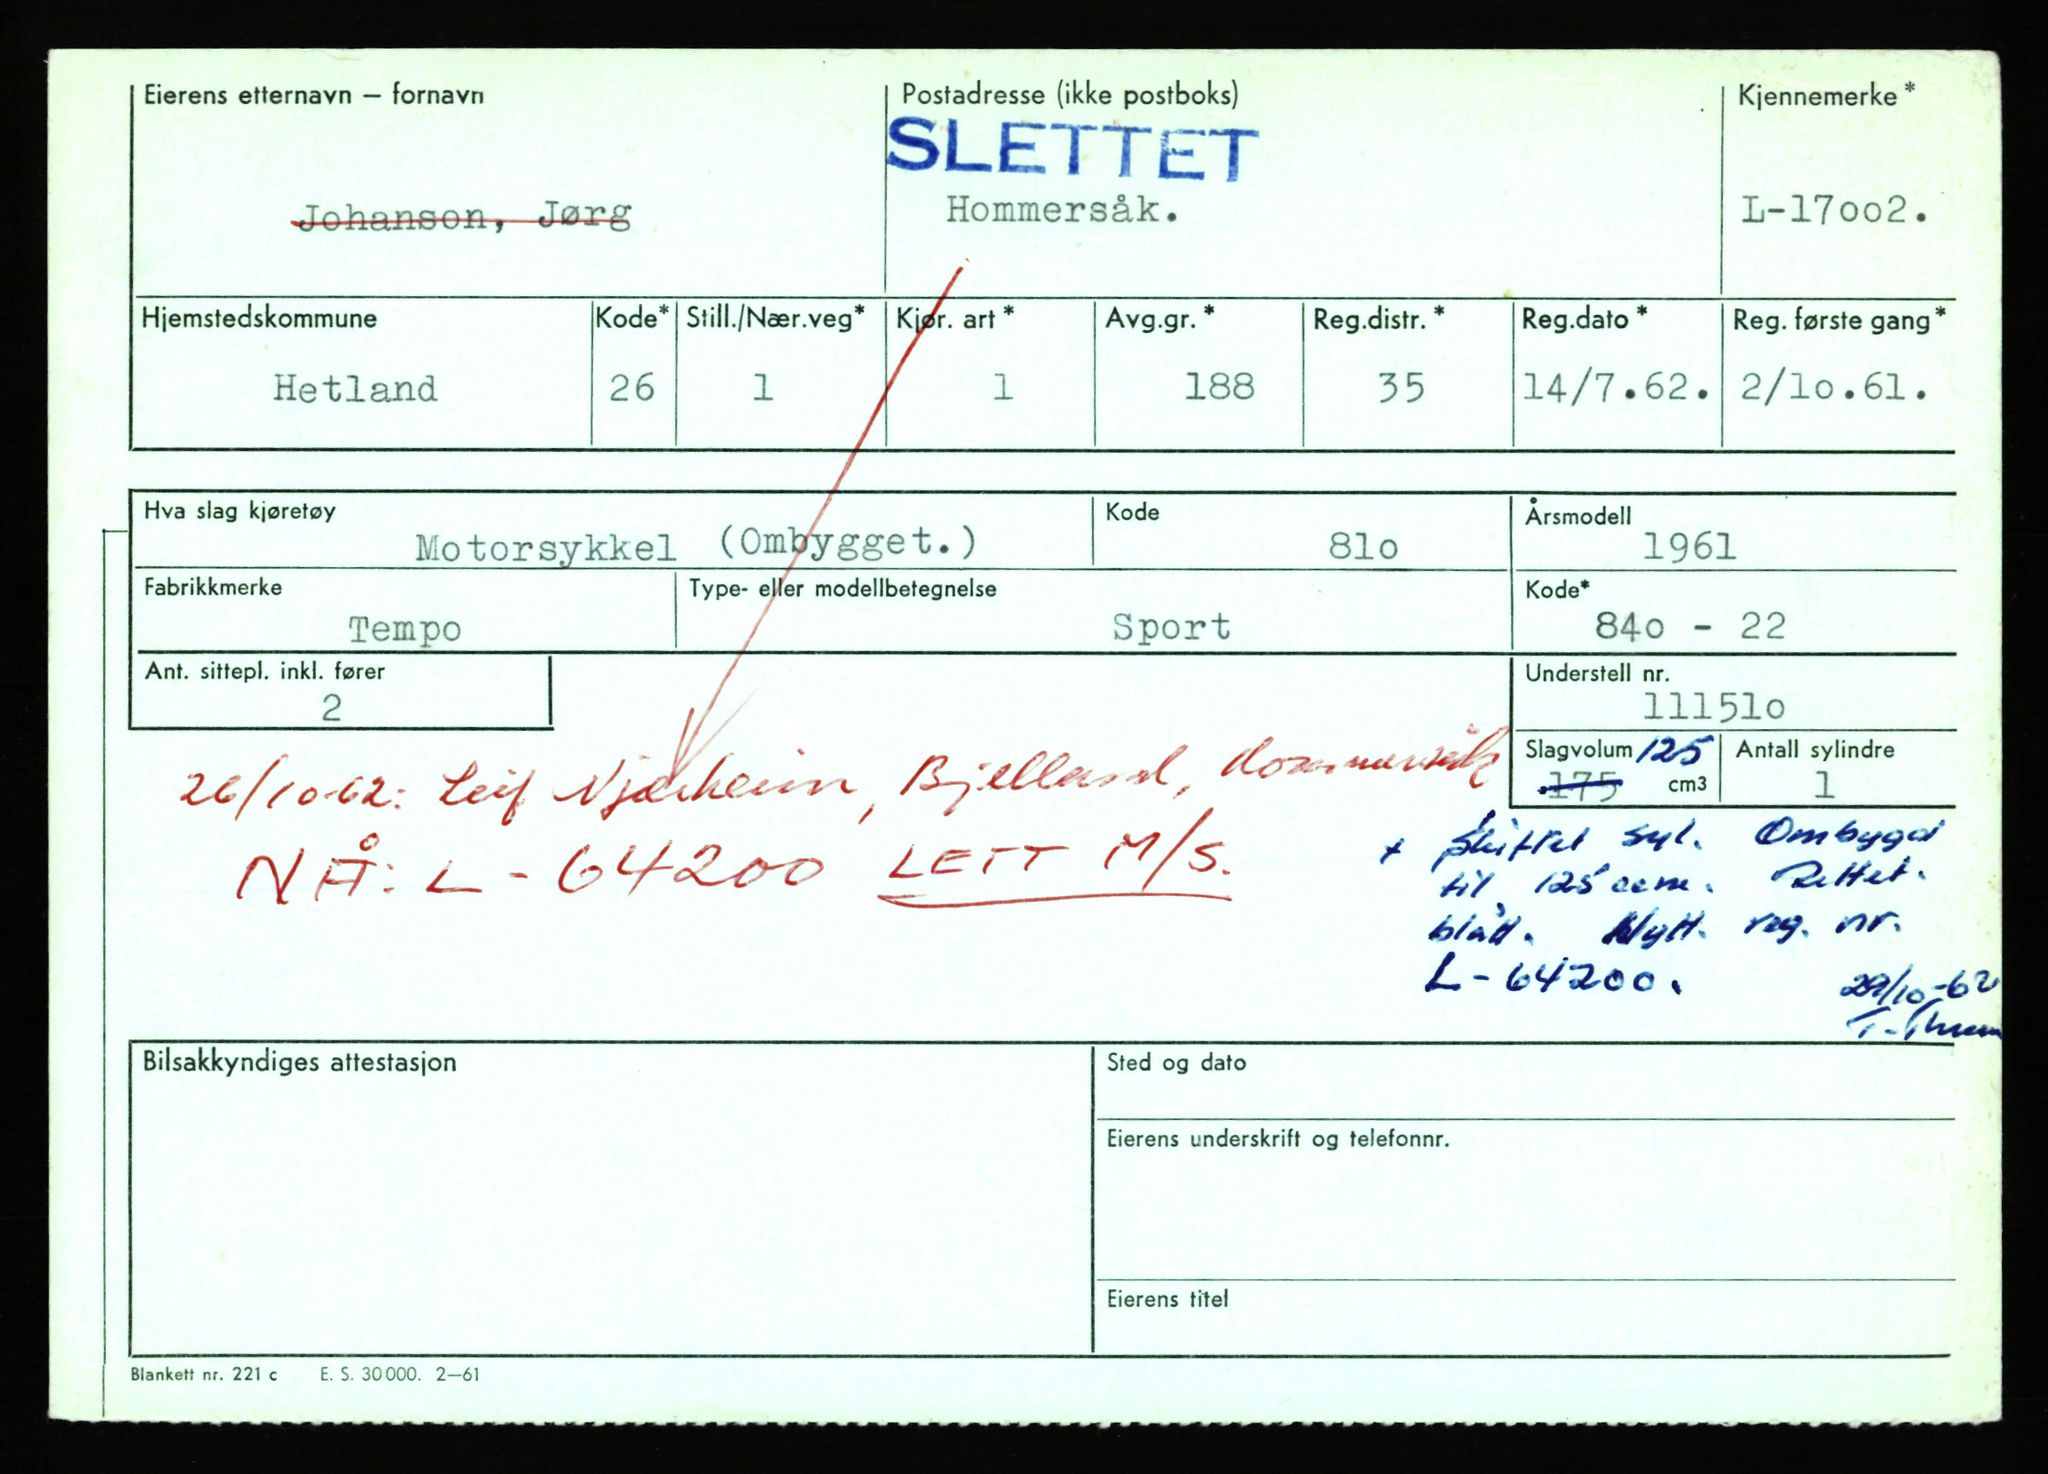 Eierens etternavn – fornavn
Postadresse (ikke postboks)
Kjennemerke*
SLETTET
Johanson, Jørg
Hommersåk.
L-17oo2.
Hjemstedskommune
Kode*
Still./Nær.veg*
Kjør. art*
Avg.gr.*
Reg.distr.*
Reg.dato*
Reg. første gang*
Hetland
26
1
1
188
35
14/7.62.
2/1o.61.
Hva slag kjøretøy
Kode
Årsmodell
Motorsykkel (Ombygget.)
81o
1961
Fabrikkmerke
Type- eller modellbetegnelse
Kode*
Tempo
Sport
84o - 22
Ant. sittepl. inkl. fører
Understell nr.
2
11151o
Slagvolum 125
Antall sylindre
175 cm3
1
26/10-62: Leif Njærheim, Bjelland, Hommersåk
NÅ: L - 64200 LETT M/S.
+ skiftet syl. Ombygd
til 125 ccm. Rettet.
blått. Nytt. reg. nr.
L-64200.
29/10-62
Bilsakkyndiges attestasjon
Sted og dato
Eierens underskrift og telefonnr.
Eierens titel
Blankett nr. 221 c E. S. 30000. 2–61